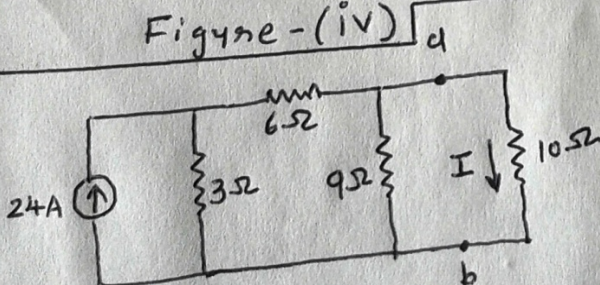 Figure-(iv)
a
6Ω
24A
3Ω
9Ω
I
10Ω
b